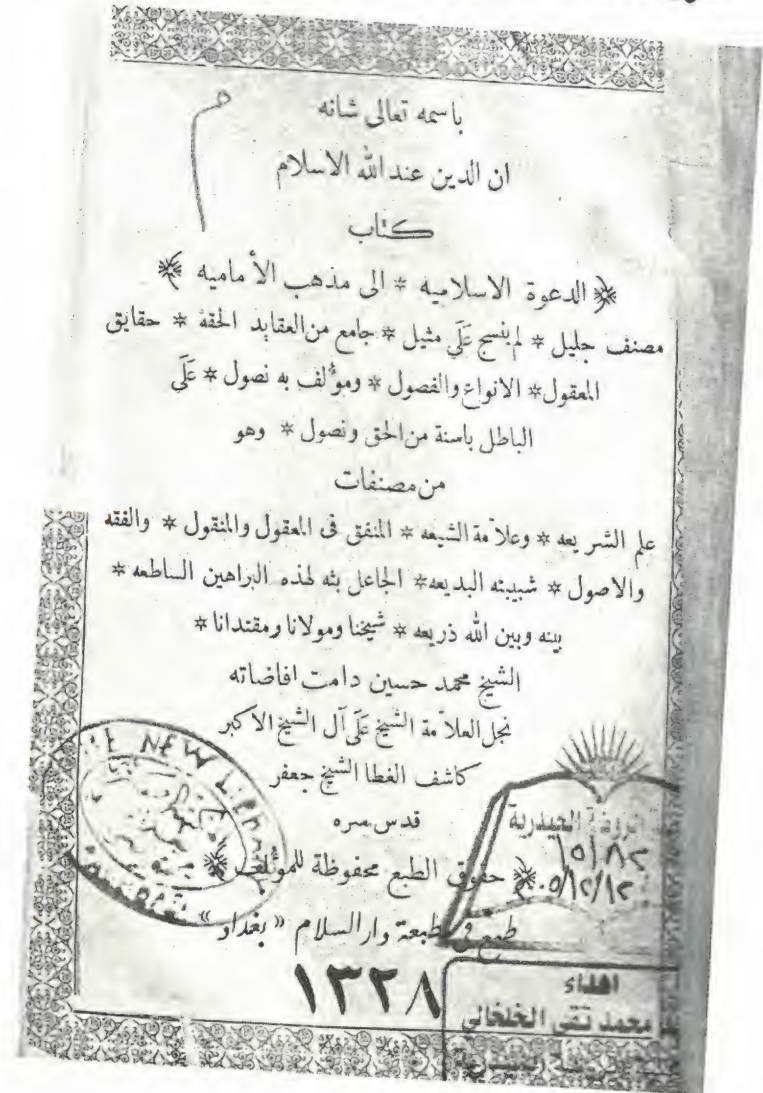 باسمه تعالى شانه
ان الدين عند الله الاسلام
كتاب
﴿ الدعوة الاسلاميه * الى مذهب الأماميه ﴾
مصنف جليل * لم ينسج عَلَى مثيل * جامع من العقايد الحقة * حقايق
المعقول * الانواع والفصول * ومؤلف به نصول * عَلَى
الباطل باسنة من الحق ونصول * وهو
من مصنفات
علم الشريعه * وعلاّمة الشيعه * المنفق فى المعقول والمنقول * والفقه
والاصول * شبيبته البديعه * الجاعل بثه لهذه البراهين الساطعه *
بينه وبين الله ذريعه * شيخنا ومولانا ومقتدانا *
الشيخ محمد حسين دامت افاضاته
نجل العلاّمة الشيخ عَلَى آل الشيخ الاكبر
كاشف الغطا الشيخ جعفر
قدس سره
﴿ حقوق الطبع محفوظة للمؤلف ﴾
طبع في مطبعة دار السلام « بغداد »
١٣٢٨
NEW
الروضة الحيدرية
١٥١٨٢
اهداء
محمد تقي الخلخالي